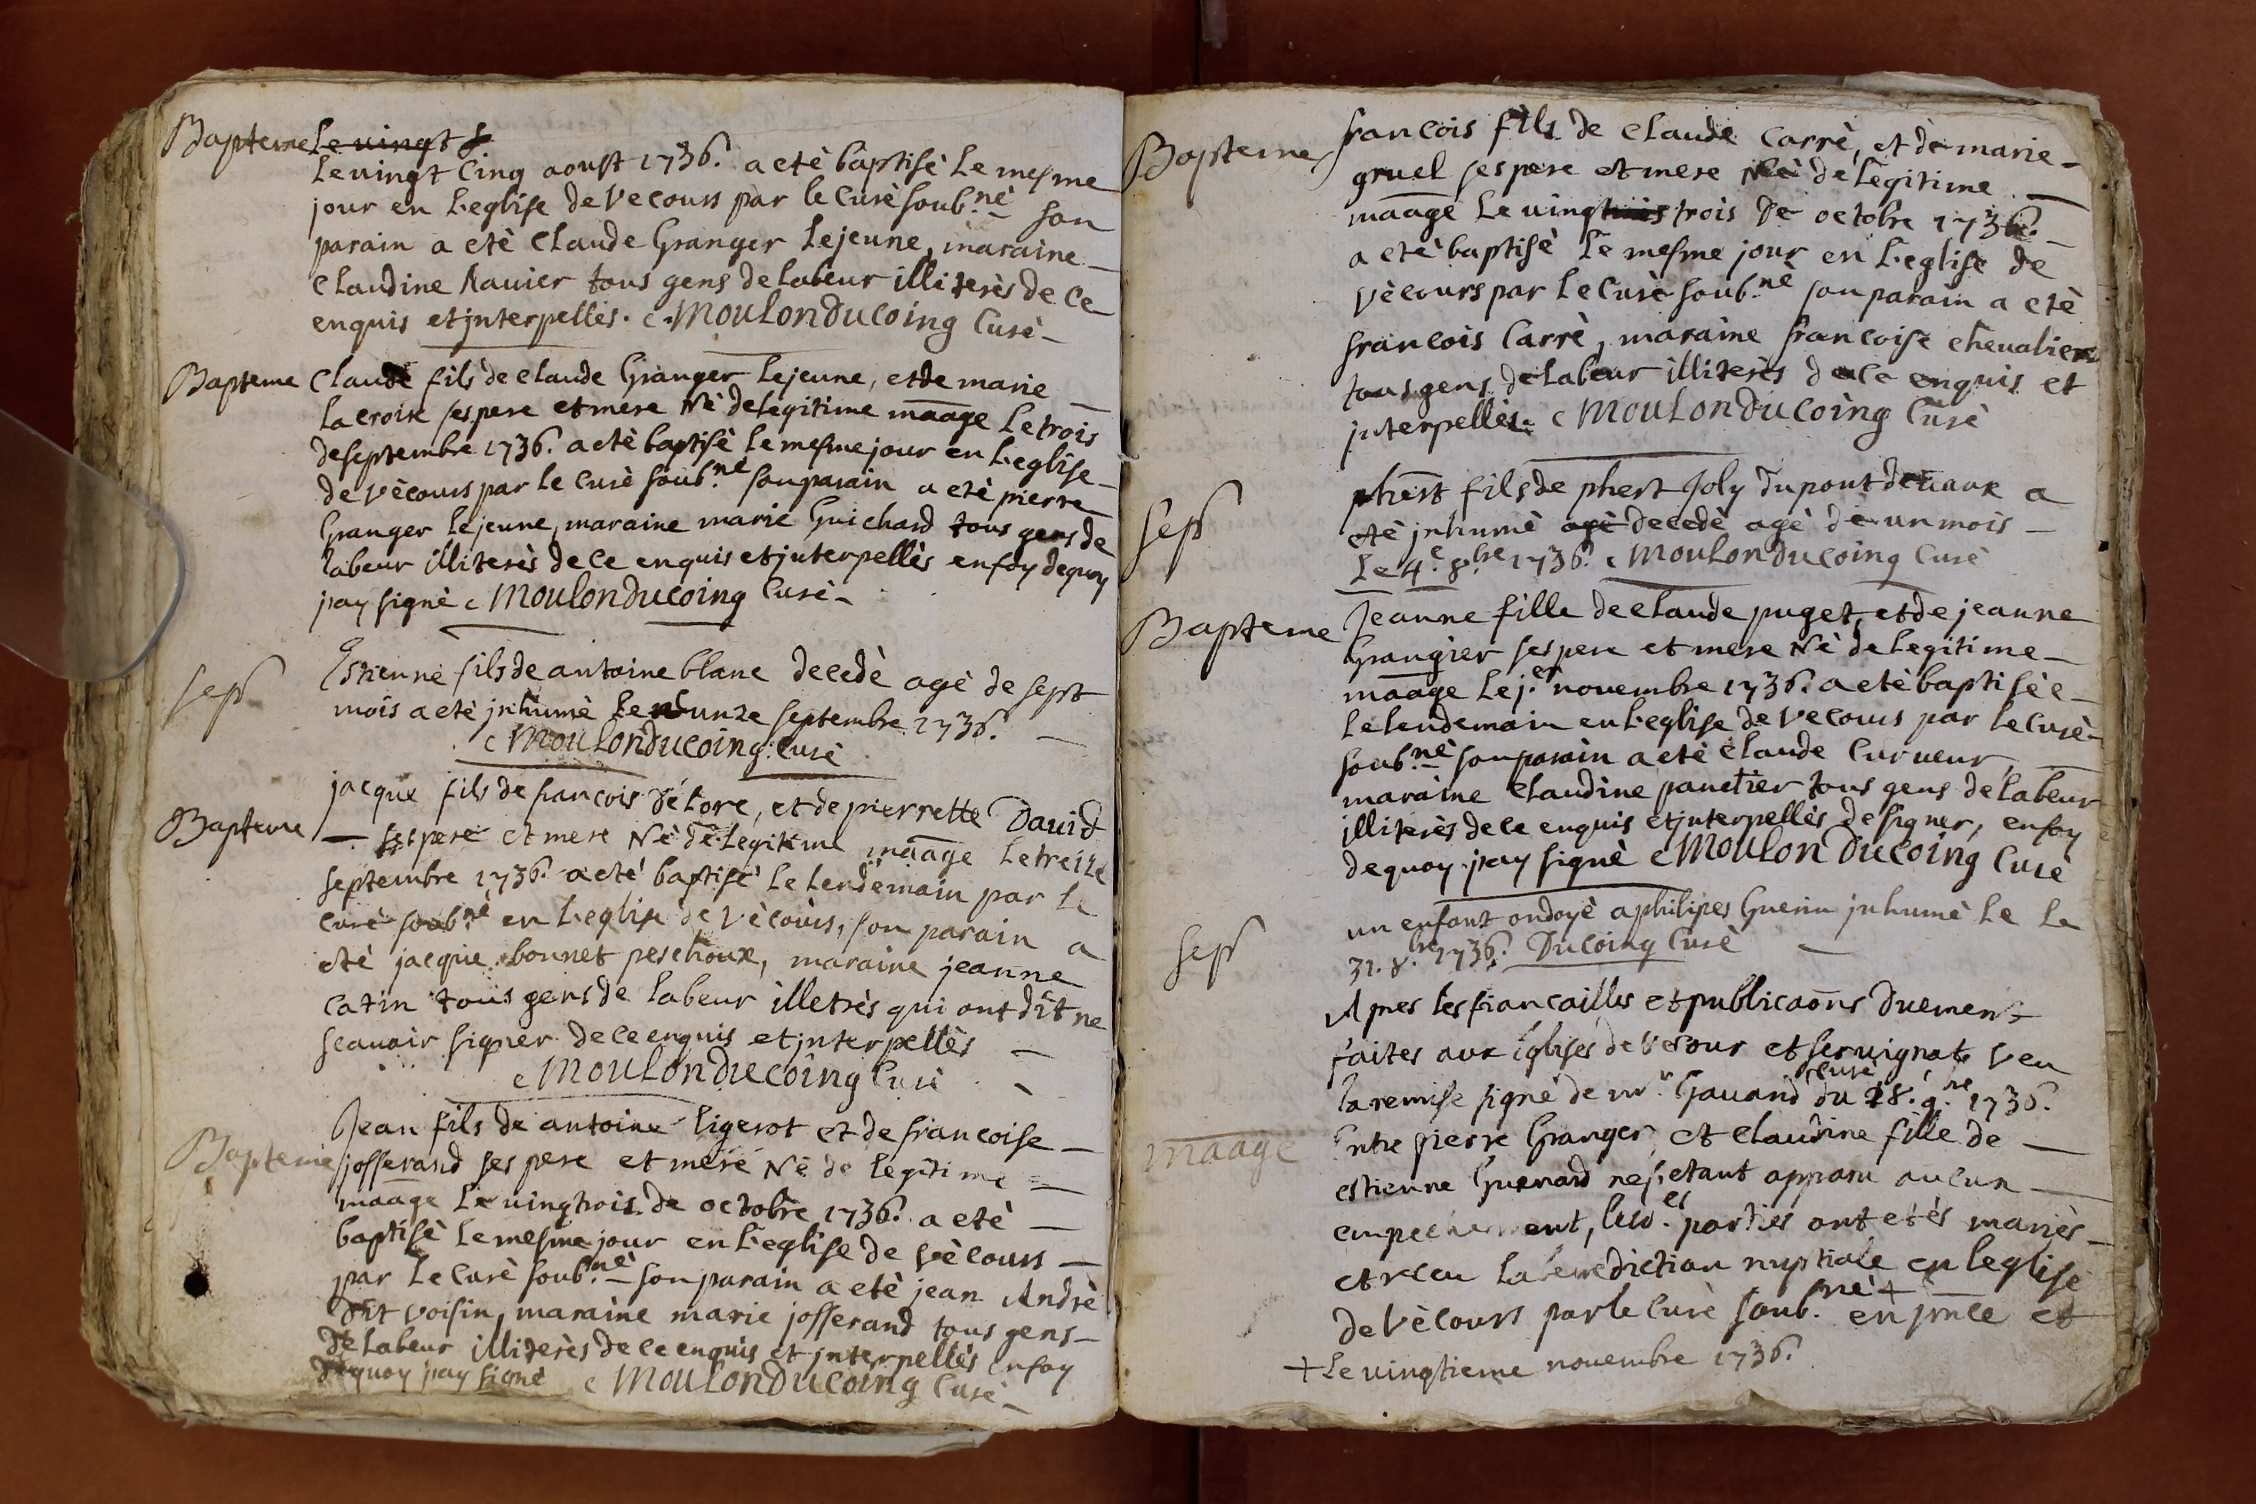 Bapteme Le vingt
Le vingt Cinq aoust 1736. a etè baptisè Le mesme
jour en L'eglise de Vecours par le Curè soub.nè son
parain a etè Claude Granger Lejeune, maraine
Claudine Ravier tous gens de labeur illiterès de Ce
enquis et jnterpellès. Moulonducoing Curè
Bapteme Claude fils de Claude Granger Lejeune, et de marie
Lacroix ses pere et mere Nè de legitime maage Le trois
de septembre 1736. a etè baptisè Le mesme jour en L'eglise
de Vècours par le Curè soub.nè son parain a etè pierre
Granger Lejeune, maraine marie Guichard tous gens de
labeur illiterès de Ce enquis et jnterpellès en foy de quoy
jay signè Moulonducoing Curè
sep. Estienne fils de antoine blanc decedè agè de sept
mois a etè jnhumè Le unze septembre 1736.
Moulonducoing Curè
jacque fils de francois Délore, et de pierrette David
Bapteme ses pere et mere Nè de Legitime maage Le treize
septembre 1736. a etè baptisè Le Lendemain par Le
Curè soub.nè en L'eglise de Vècours, son parain a
etè jacque bonnet peschoux, maraine jeanne
Catin tous gens de labeur illetrès qui ont dit ne
scauoir signer de Ce enquis et jnterpellès
Moulonducoing Curè
Jean fils de antoine ligerot et de francoise
Bapteme josserand ses pere et mere Nè de legitime
maage Le vingtrois de octobre 1736. a etè
baptisè Le mesme jour en L'eglise de Vècours
par Le Curè soub.nè son parain a etè jean Andrè
dit voisin, maraine marie josserand tous gens
de Labeur illiterès de Ce enquis et jnterpellès en foy
de quoy jay signè Moulonducoing Curè
francois fils de Claude Carrè, et de marie
Bapteme gruel ses pere et mere Nè de legitime
maage Le ving trois de octobre 1736.
a etè baptisè Le mesme jour en L'eglise de
Vècours par Le Curè soub.nè son parain a etè
francois Carrè, maraine francoise chevalier
tous gens de Labeur illiterès de Ce enquis et
jnterpellès. Moulonducoing Curè
phert fils de phert Joly du pont de vaux a
sep. etè jnhumè agè decedè agè de un mois
Le 4.e 8.bre 1736. Moulonducoing Curè
Bapteme Jeanne fille de Claude puget, et de jeanne
Grangier ses pere et mere Nè de Legitime
maage Le j.er novembre 1736. a etè baptisèe
Le Lendemain en L'eglise de Vecours par Le Curè
soub.nè son parain a etè Claude Curveur,
maraine Claudine panetier tous gens de Labeur
illiterès de Ce enquis et jnterpellès de signer, en foy
de quoy jay signè Moulon Ducoing Curè
un enfant ondoyè a philipes Guerin jnhumè Le Le
sep. 31. 8.bre 1736. Ducoing Curè
Apres les fiancailles et publicaõns Duement
faites aux Eglises de Vecour et servignat Veu
La remise signè de mr. Gavand Curè du 18. 9.bre 1736.
maage Entre pierre Granger, et Claudine fille de
estienne Guenard ne s'etant apparu aucun
empechement, lesd.es parties ont etès mariès
et receu La benediction nuptiale en L'eglise
de Vècours par le Curè soub.nè + en prnce et
+ Le vingtieme novembre 1736.